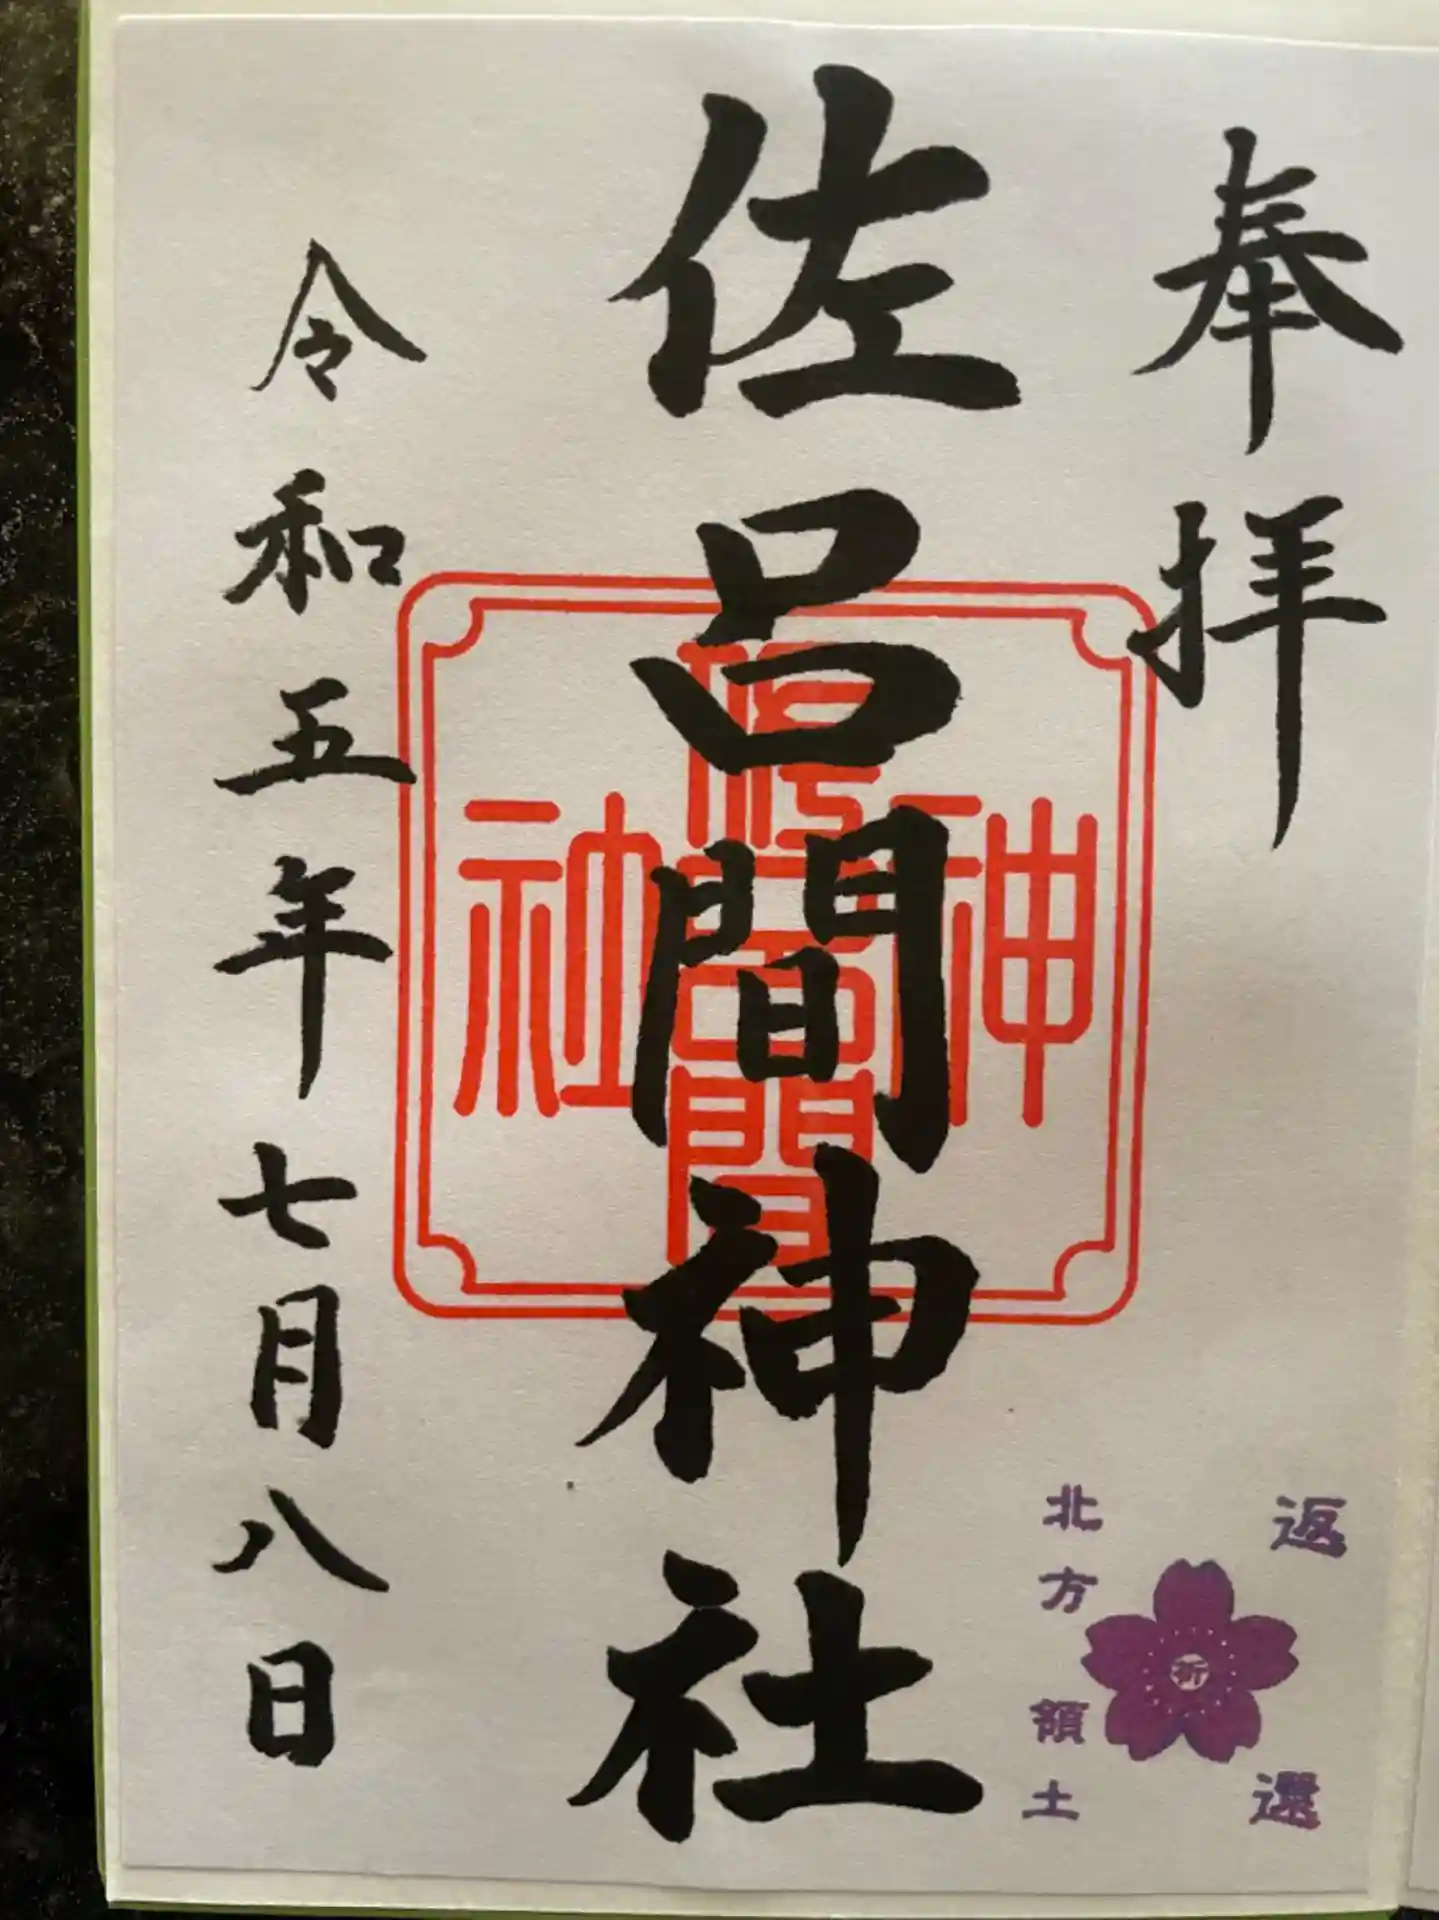 奉拝
佐呂間神社
令和五年七月八日
佐呂間
神
社
北方領土
返還
祈